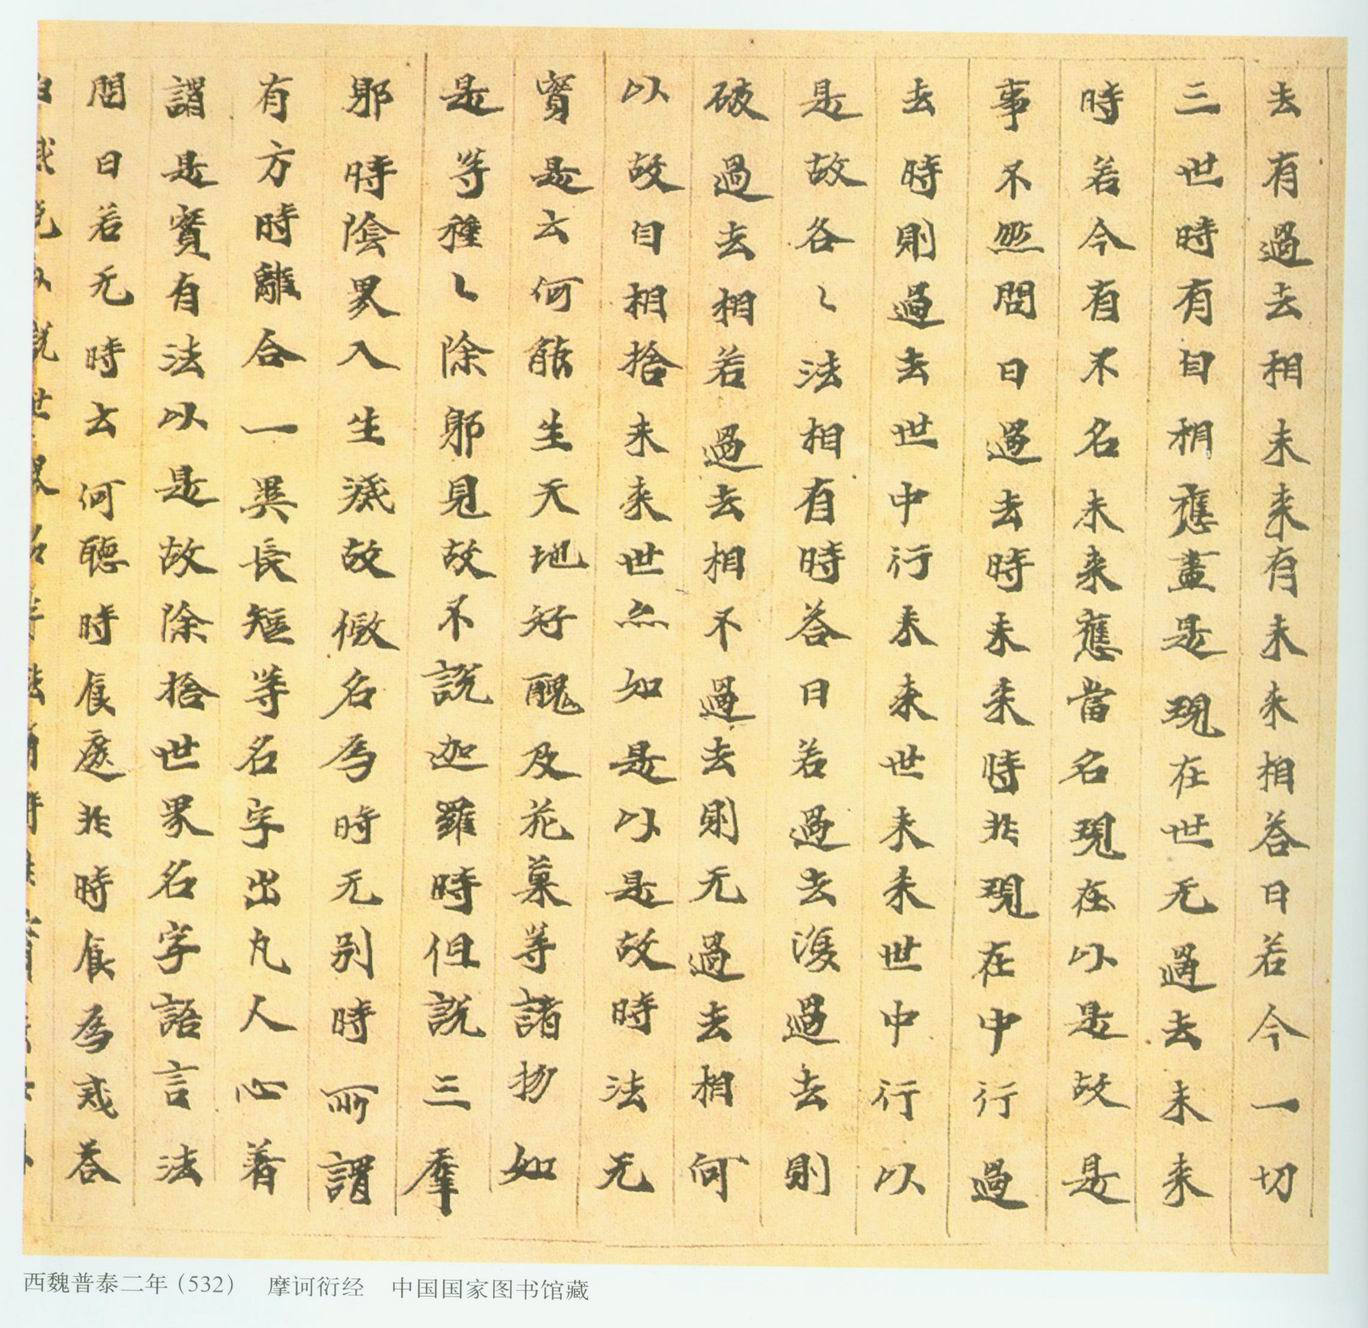 去有過去相未来有未来相答曰若今一切
三世時有自相應盡是現在世无過去未来
時若今有不名未来應當名現在以是故是
事不然問曰過去時未来時非現在中行過
去時則過去世中行未来世未来世中行以
是故各〻法相有時答曰若過去復過去則
破過去相若過去相不過去則无過去相何
以故自相捨未来世亦如是以是故時法无
實是云何能生天地好醜及花菓等諸物如
是等種〻除邪見故不說迦羅時但說三羣
邪時陰界入生滅故假名為時无別時所謂
有方時離合一異長短等名字出凡人心著
謂是實有法以是故除捨世界名字語言法
問曰若无時云何聽時食處非時食為戒答
西魏普泰二年（532） 摩诃衍经 中国国家图书馆藏